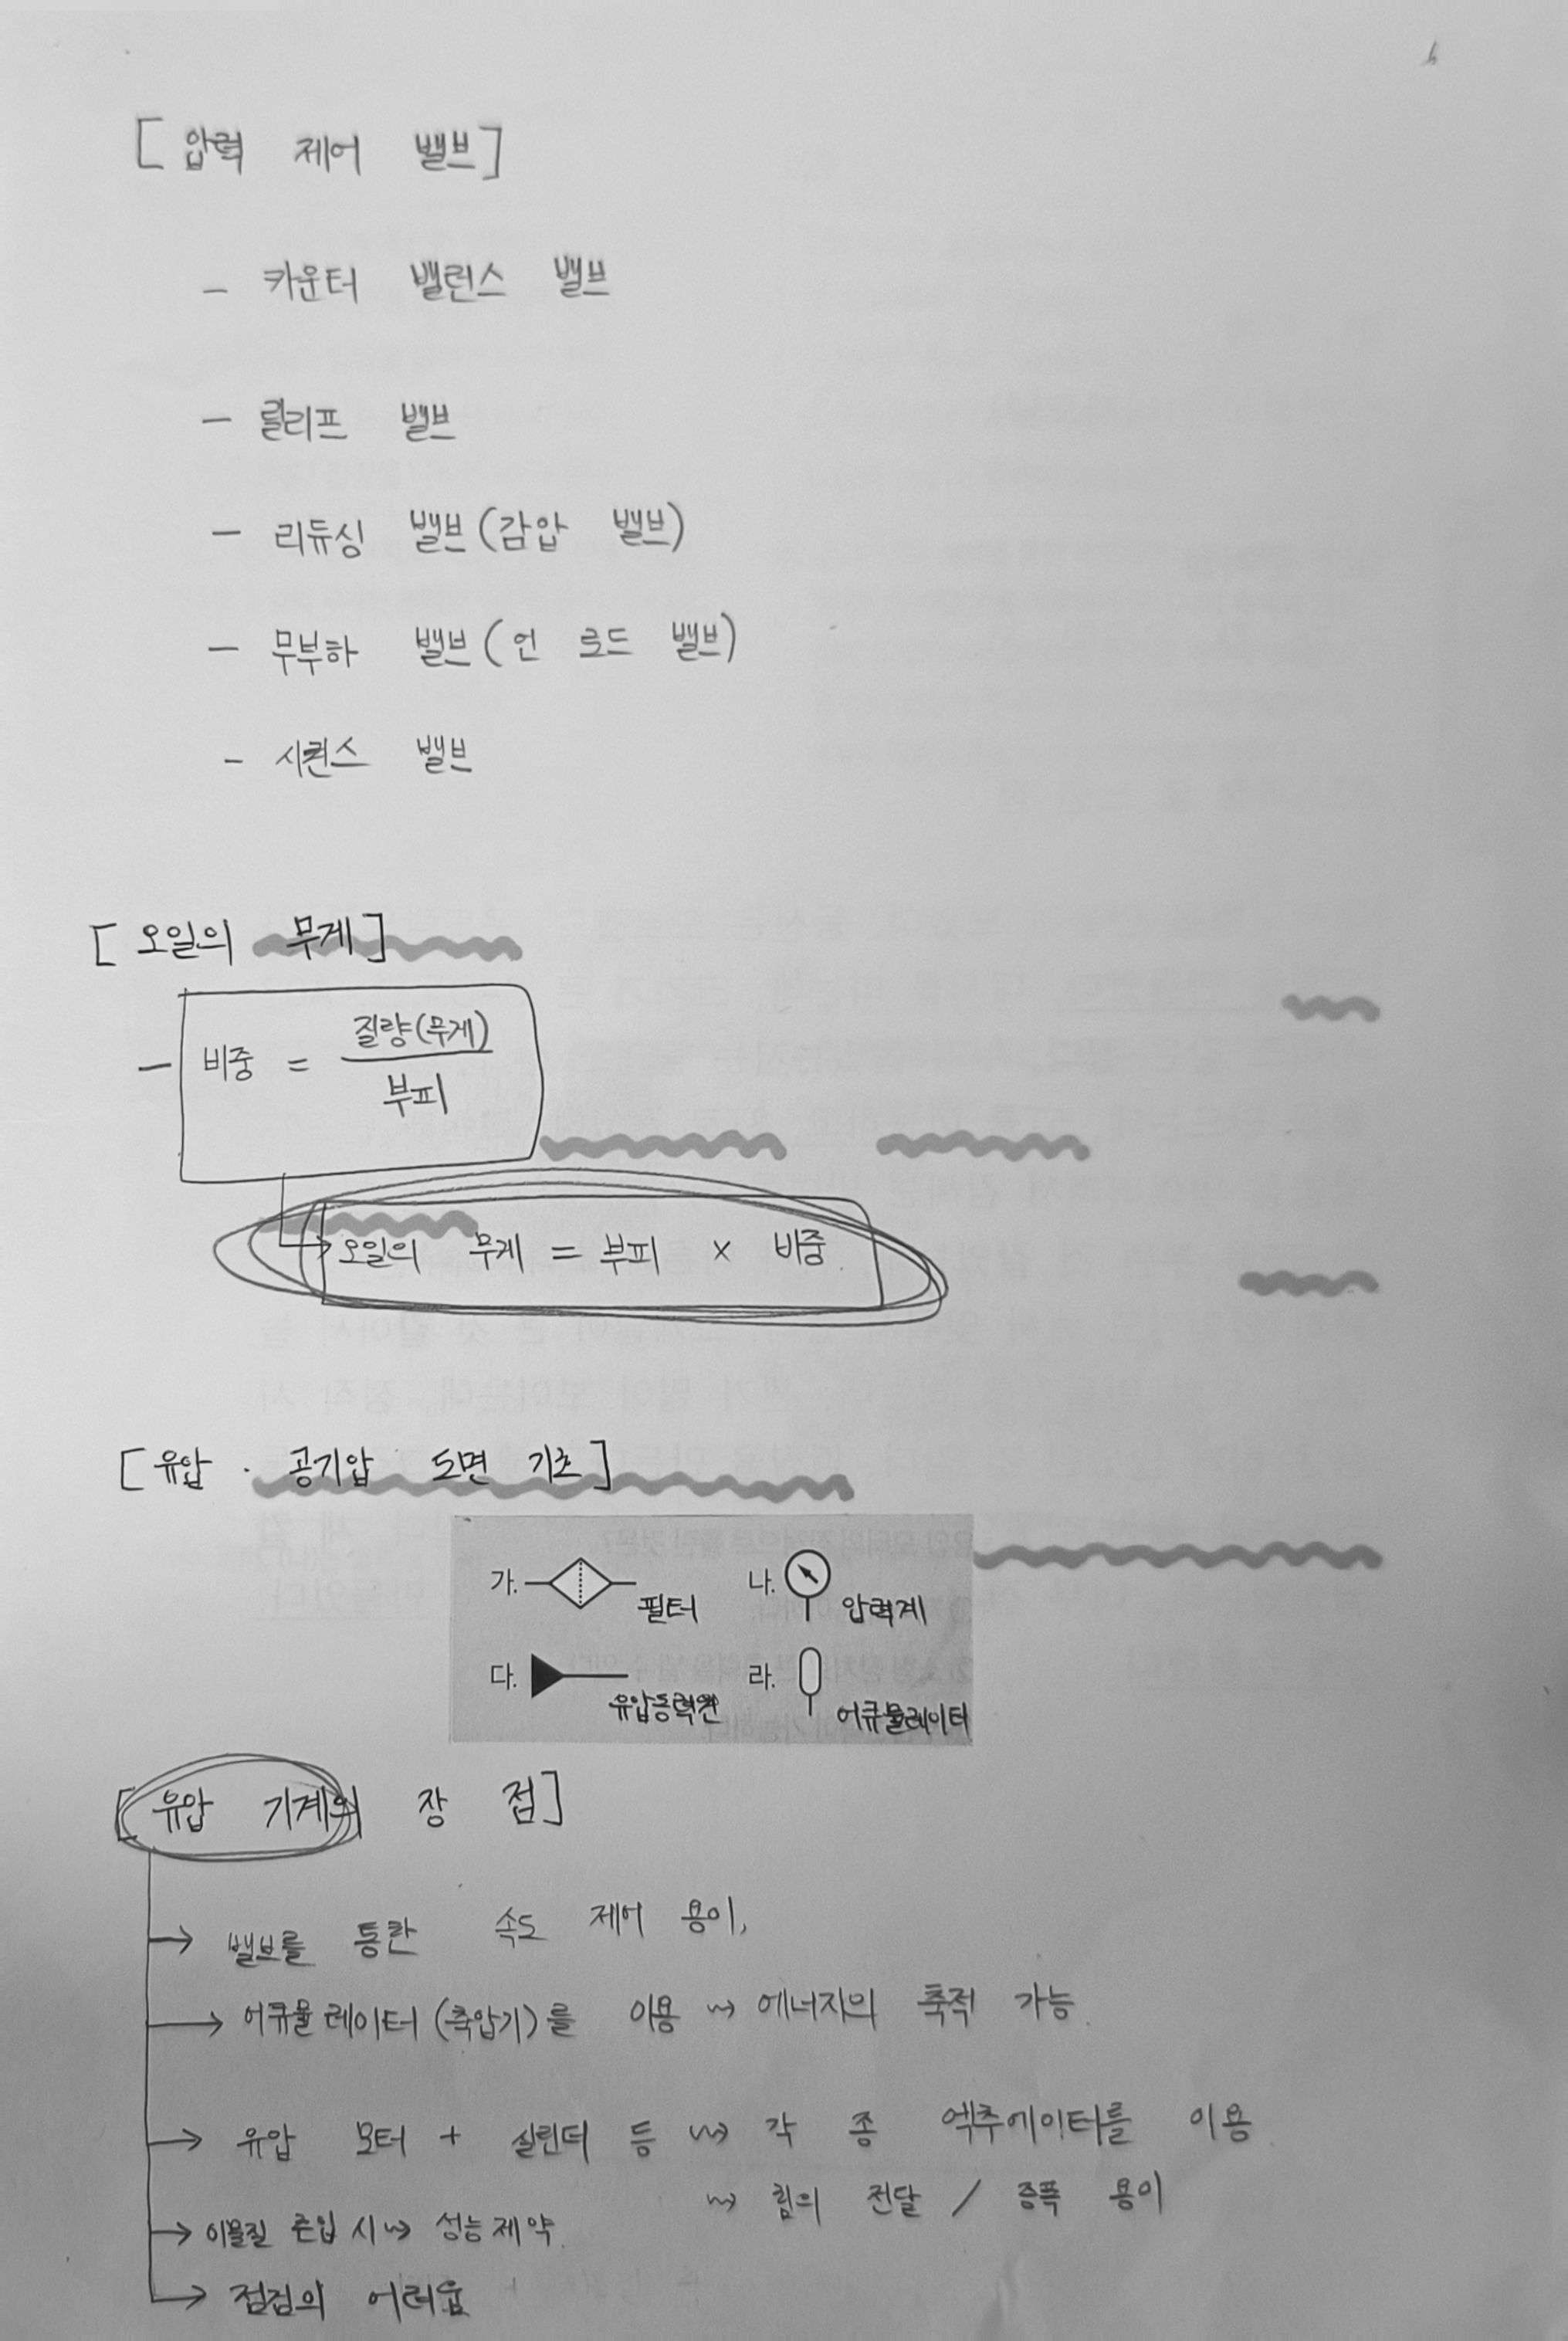 [압력 제어 밸브]
- 카운터 밸런스 밸브
- 릴리프 밸브
- 리듀싱 밸브(감압 밸브)
- 무부하 밸브(언 로드 밸브)
- 시퀀스 밸브
[오일의 무게]
- 비중 = 질량(무게) / 부피
→ 오일의 무게 = 부피 × 비중
[유압 · 공기압 도면 기초]
가. 필터 나. 압력계
다. 유압동력원 라. 어큐뮬레이터
[유압 기계의 장 점]
→ 밸브를 통한 속도 제어 용이,
→ 어큐뮬레이터(축압기)를 이용 ↝ 에너지의 축적 가능.
→ 유압 모터 + 실린더 등 ↝ 각 종 엑추에이터를 이용
↝ 힘의 전달 / 증폭 용이
→ 이물질 혼입 시 ↝ 성능 제약.
→ 점검의 어려움